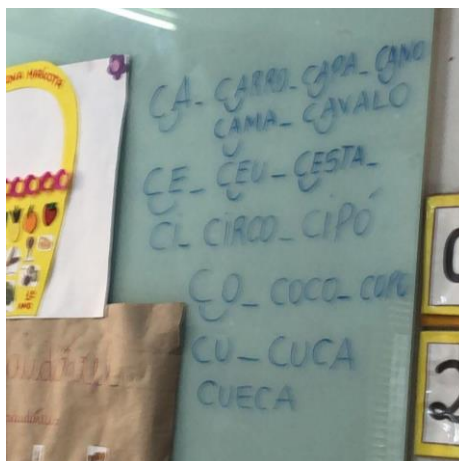 CA_ CARRO_CAPA_CANO
CAMA_CAVALO
CE_ CEU_CESTA_
CI_ CIRCO_CIPÓ
CO_ COCO_COPO
CU_CUCA
CUECA
MARICOTA
2